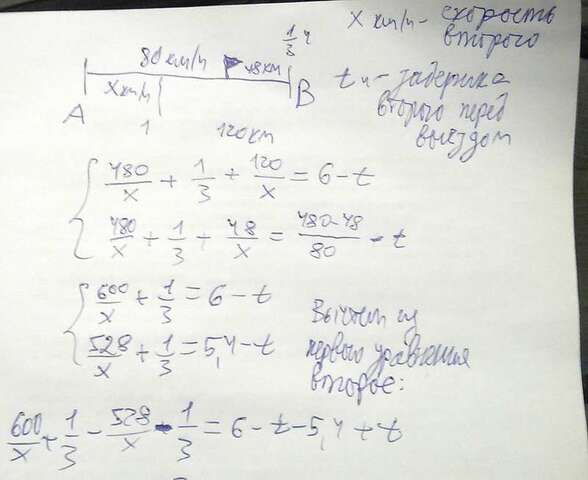 x км/ч - скорость
второго
1/3 ч
80 км/ч
48 км
x км/ч
A
B
1
120 км
t ч - задержка
второго перед
выездом
480/x + 1/3 + 120/x = 6 - t
480/x + 1/3 + 48/x = 480-48/80 - t
600/x + 1/3 = 6 - t
528/x + 1/3 = 5,4 - t
Вычтем из
первого уравнения
второе:
600/x + 1/3 - 528/x - 1/3 = 6 - t - 5,4 + t